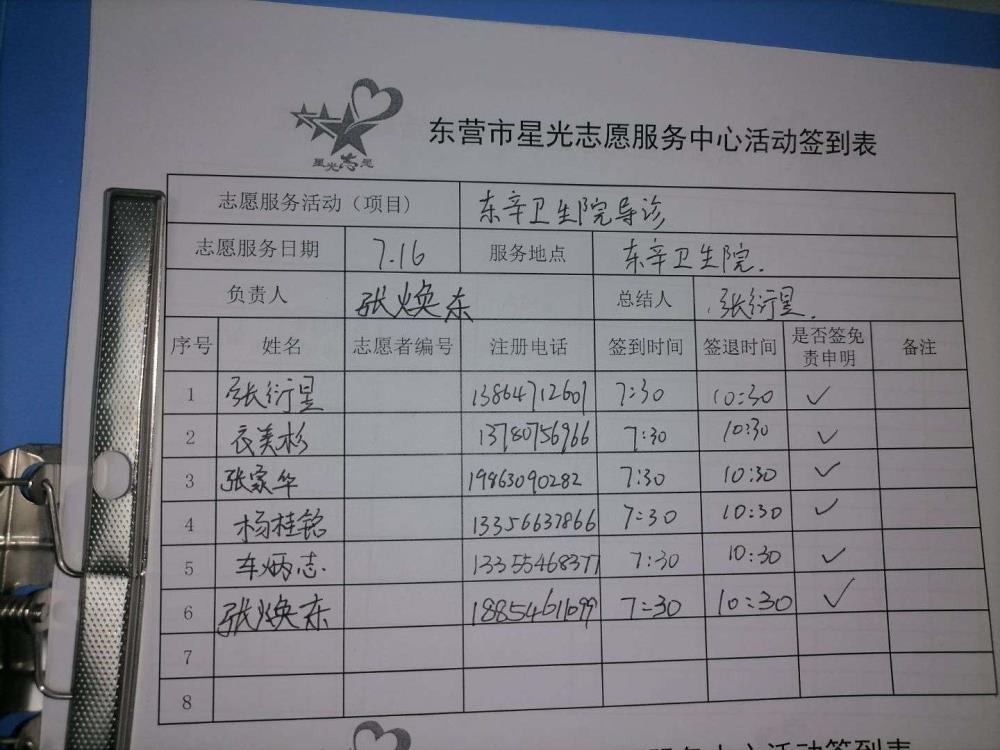 星光志愿
东营市星光志愿服务中心活动签到表
志愿服务活动（项目） 东辛卫生院导诊
志愿服务日期 7.16 服务地点 东辛卫生院.
负责人 张焕东 总结人 张衍星.
序号 姓名 志愿者编号 注册电话 签到时间 签退时间 是否签免责申明 备注
1 张衍星 13864712607 7:30 10:30 ✓
2 衣美杉 13780756966 7:30 10:30 ✓
3 张家华 19863090282 7:30 10:30 ✓
4 杨桂铭 13356637866 7:30 10:30 ✓
5 车炳志. 13355468377 7:30 10:30 ✓
6 张焕东 18854611099 7:30 10:30 ✓
7
8
务中心活动签到表